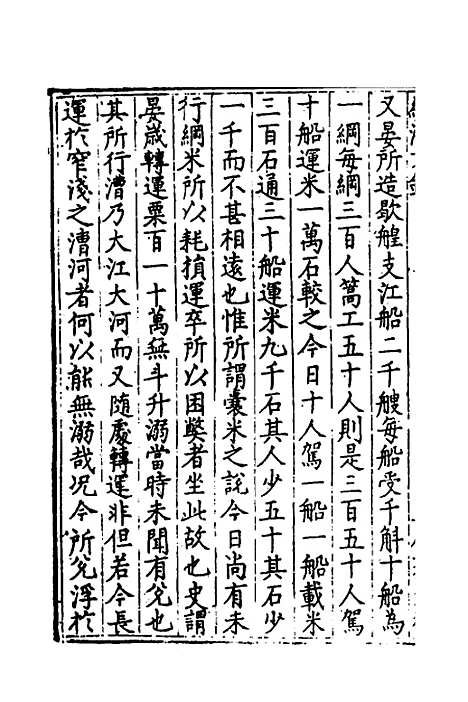 又晏所造歇艎支江船二千艘每船受千斛十船為
一綱每綱三百人篙工五十人則是三百五十人駕
十船運米一萬石較之今日十人駕一船一船載米
三百石通三十船運米九千石其人少五十其石少
一千而不甚相遠也惟所謂囊米之說今日尚有未
行綱米所以耗損運卒所以困弊者坐此故也史謂
晏歲轉運粟百一十萬無斗升溺當時未聞有兌也
其所行漕乃大江大河而又隨處轉運非但若今長
運於窄淺之漕河者何以能無溺哉况今所兌浮於